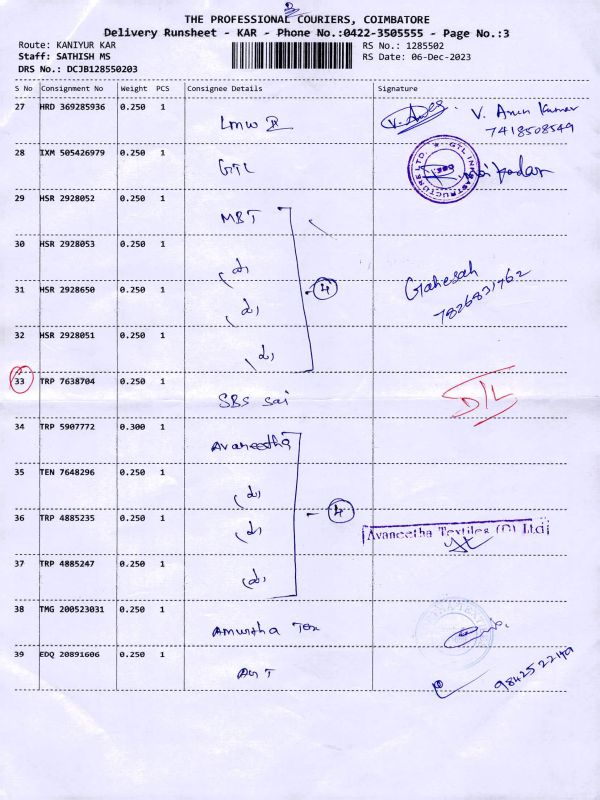 THE PROFESSIONAL COURIERS, COIMBATORE
Delivery Runsheet - KAR - Phone No.:0422-3505555 - Page No.:3
Route: KANIYUR KAR RS No.: 1285502
Staff: SATHISH MS RS Date: 06-Dec-2023
DRS No.: DCJB128550203
S No Consignment No Weight PCS Consignee Details Signature
27 HRD 369285936 0.250 1 LMW V. Arun Kumar
7418508549
28 IXM 505426979 0.250 1 GTL GTL INFRASTRUCTURE LTD.
29 HSR 2928052 0.250 1 MBT
30 HSR 2928053 0.250 1 (d)
31 HSR 2928650 0.250 1 (d) 4 Gahesah
7826831762
32 HSR 2928051 0.250 1 (d)
33 TRP 7638704 0.250 1 SBS sai D/L
34 TRP 5907772 0.300 1 Avaneetha
35 TEN 7648296 0.250 1 (d)
36 TRP 4885235 0.250 1 (d) 4 Avaneetha Textiles (P) Ltd
37 TRP 4885247 0.250 1 (d)
38 TMG 200523031 0.250 1 Amurtha Tex
39 EDQ 20891606 0.250 1